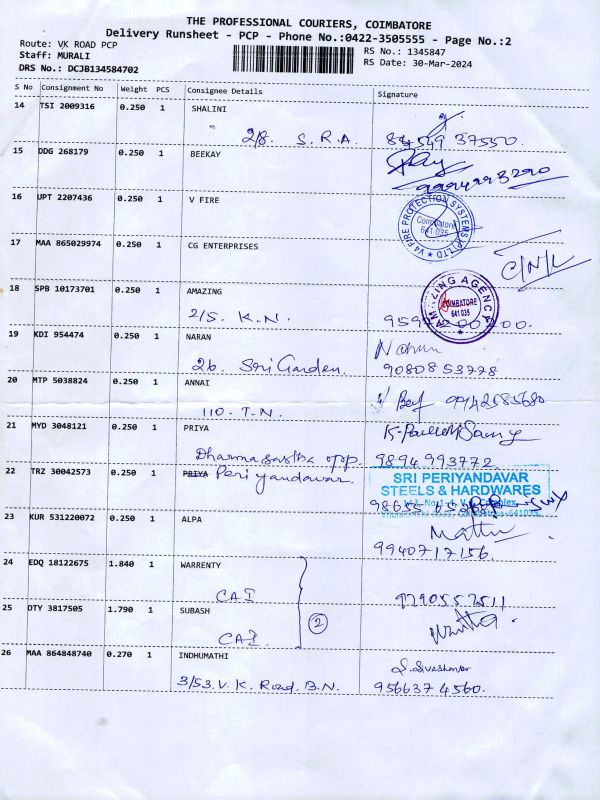 THE PROFESSIONAL COURIERS, COIMBATORE
Delivery Runsheet - PCP - Phone No.:0422-3505555 - Page No.:2
Route: VK ROAD PCP
RS No.: 1345847
Staff: MURALI
RS Date: 30-Mar-2024
DRS No.: DCJB134584702
S No Consignment No Weight PCS Consignee Details Signature
14 TSI 2009316 0.250 1 SHALINI
2/8. S.R.A. 37550.
15 DDG 268179 0.250 1 BEEKAY
16 UPT 2207436 0.250 1 V FIRE
V4 FIRE PROTECTION SYSTEMS (P) LTD
Coimbatore
641 035
17 MAA 865029974 0.250 1 CG ENTERPRISES
C/N/L
18 SPB 10173701 0.250 1 AMAZING
AMAZING AGENCY
COIMBATORE
641 035
2/5. K.N.
19 KDI 954474 0.250 1 NARAN
26. Sri Garden. 90808 53778
20 MTP 5038824 0.250 1 ANNAI
110. T.N. 99442585680
21 MYD 3048121 0.250 1 PRIYA
Dharmasastha opp. 9894993772.
22 TRZ 30042573 0.250 1 PRIYA Periyandavar.
SRI PERIYANDAVAR
STEELS & HARDWARES
23 KUR 531220072 0.250 1 ALPA
9940717156.
24 EDQ 18122675 1.840 1 WARRENTY
CAI 9790557511
25 OTY 3817505 1.790 1 SUBASH
CAI. 2
26 MAA 864848740 0.270 1 INDHUMATHI
3/53. V.K. Road. B.N. 9566374560.